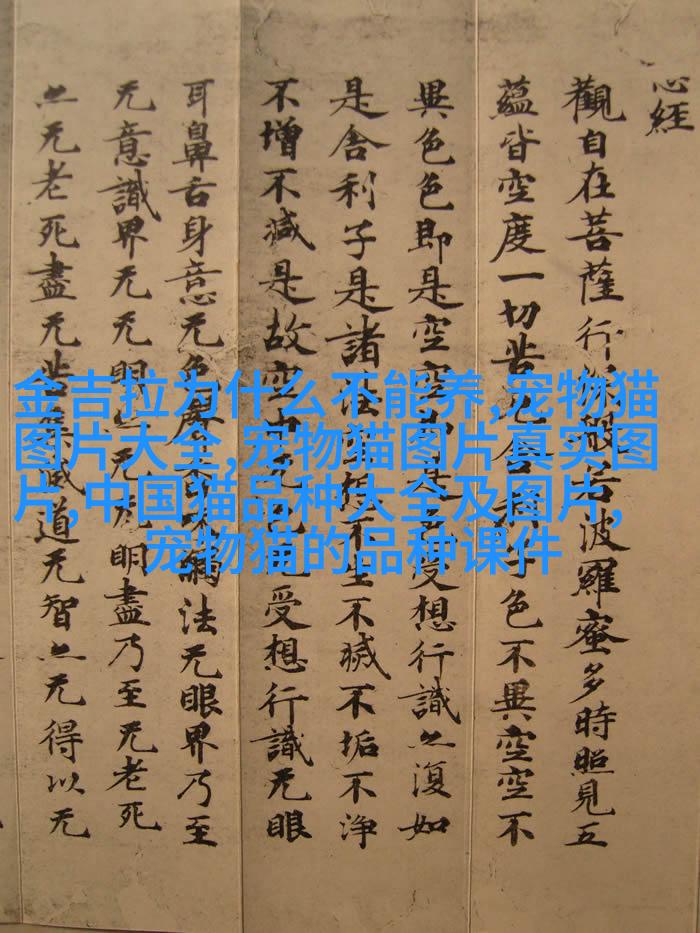 心經
觀自在菩薩行深般若波羅蜜多時照見五
蘊皆空度一切苦厄舍利子色不異空空不
異色色即是空空即是色受想行識亦復如
是舍利子是諸法空相不生不滅不垢不淨
不增不減是故空中无色无受想行識无眼
耳鼻舌身意无色聲香味觸法无眼界乃至
无意識界无无明亦无无明盡乃至无老死
亦无老死盡无苦集滅道无智亦无得以无
金吉拉为什么不能养,宠物猫
图片大全,宠物猫图片真实图
片,中国猫品种大全及图片,
宠物猫的品种课件